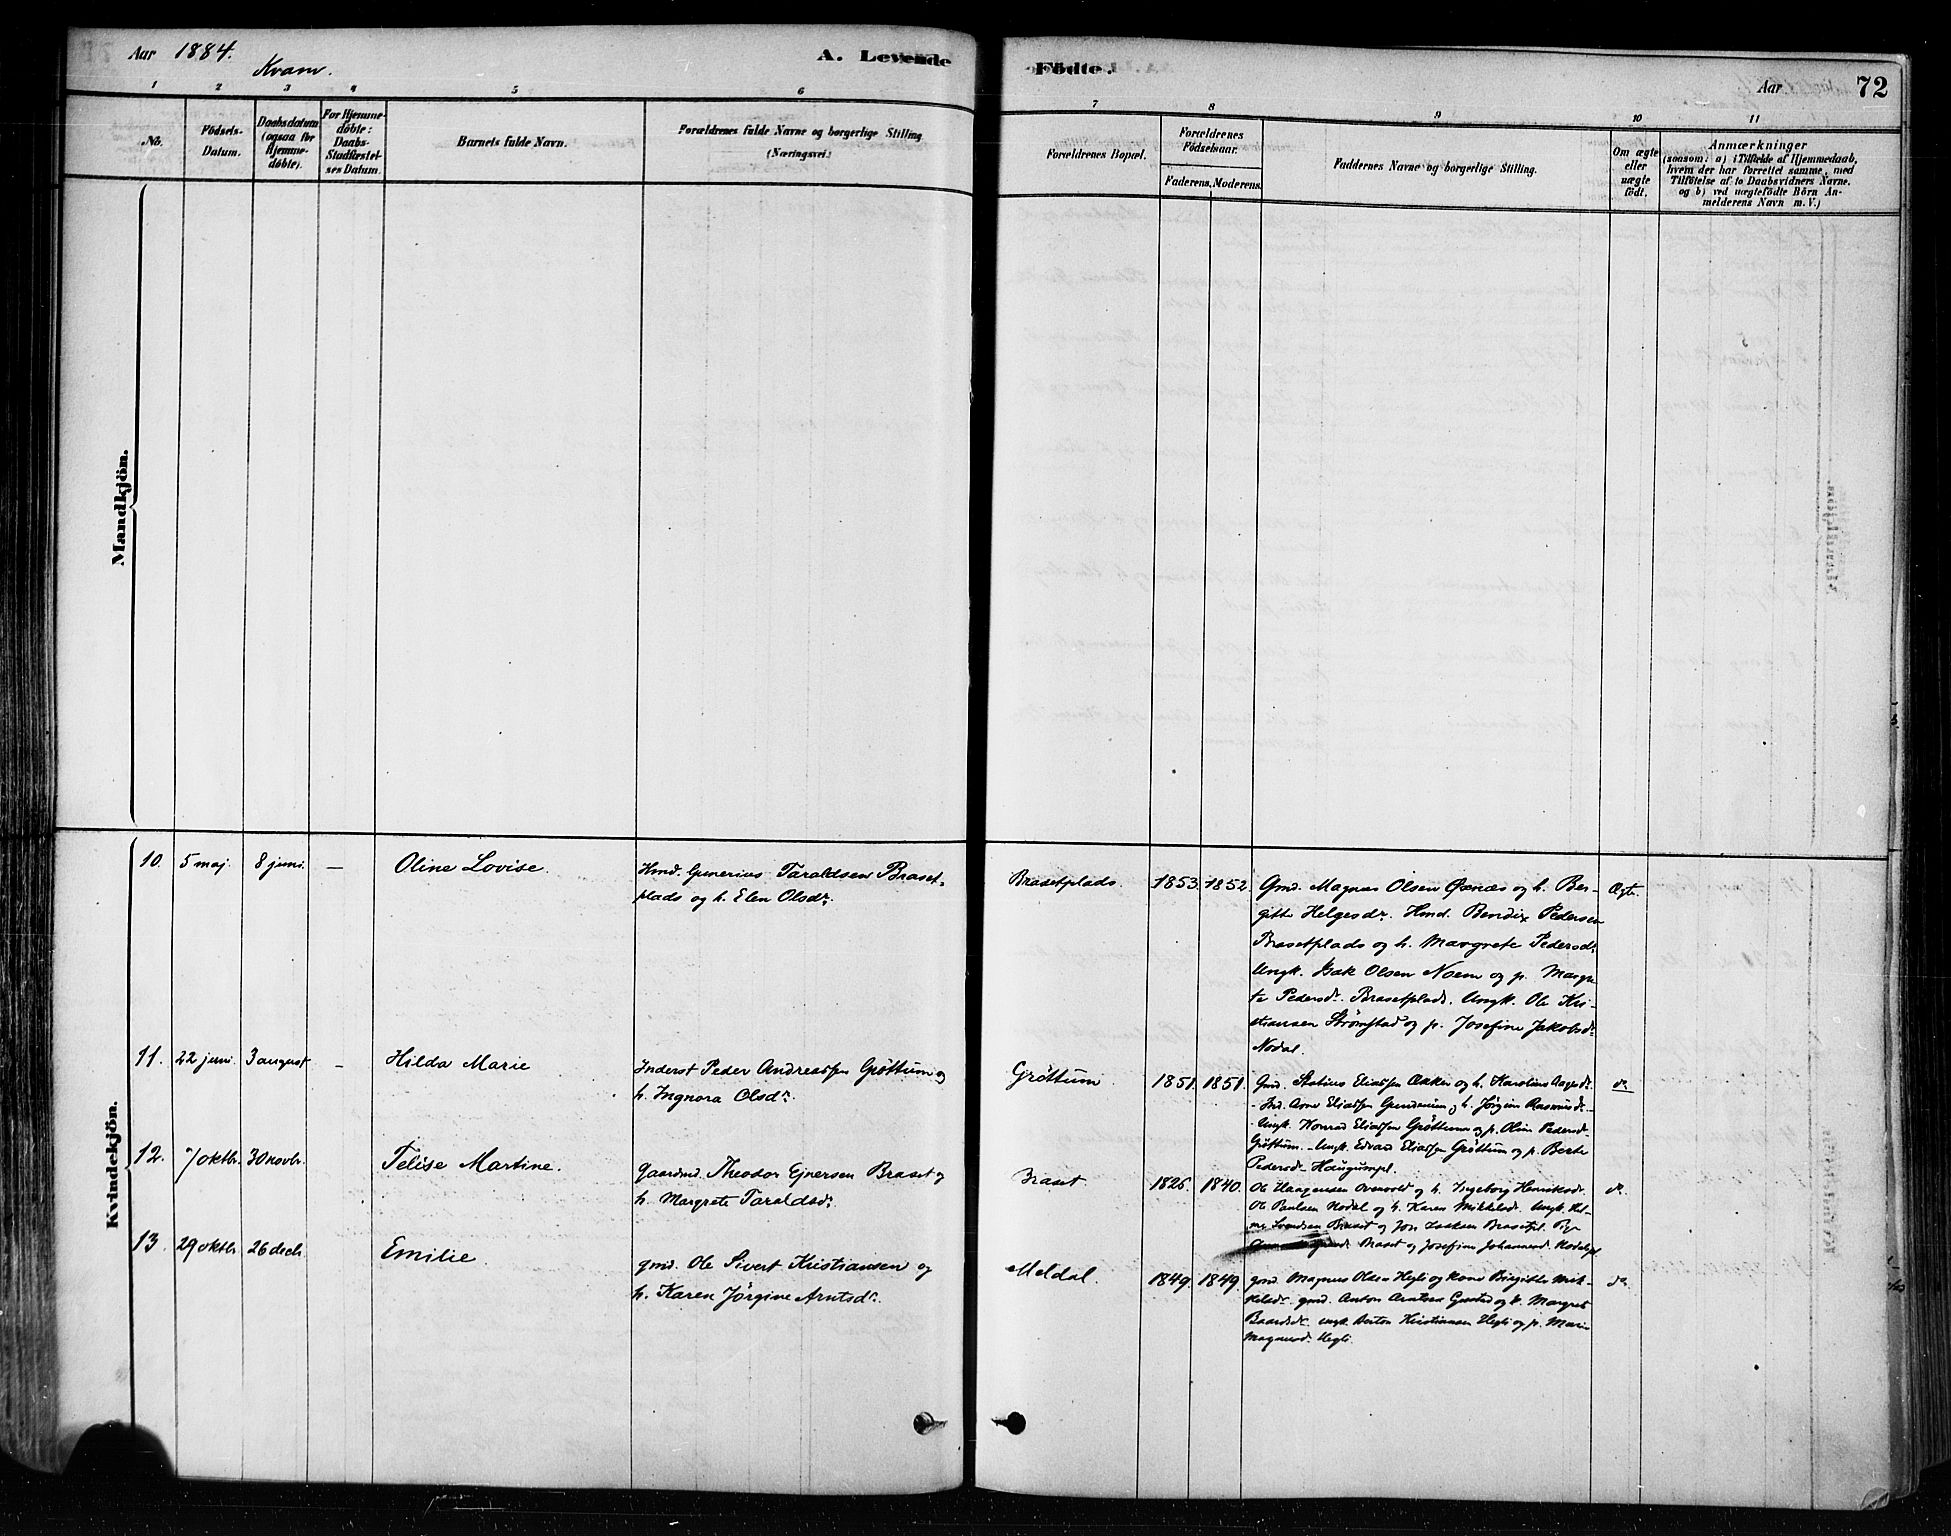 Aar 1884.
Kvam.
A. Levende
Födte.
Aar
72
1
2
3
4
5
6
7
8
9
10
11
No.
Födsels-
Datum.
Daabsdatum
(ogsaa for
Hjemme-
döbte).
For Hjemme-
döbte:
Daabs-
Stadfæstel-
ses Datum.
Barnets fulde Navn.
Forældrenes fulde Navne og borgerlige Stilling
(Næringsvei.)
Forældrenes Bopæl.
Forældrenes
Födselsaar.
Faderens.
Moderens.
Faddernes Navne og borgerlige Stilling.
Om ægte
eller
uægte
födt.
Anmærkninger
(saasom: a) i Tilfælde af Hjemmedaab,
hvem der har forrettet samme, med
Tilföielse af to Daabsvidners Navne,
og b) ved uægtefödte Börn An-
melderens Navn m. V.)
Mandkjön.
Kvindekjön.
10.
5 maj.
8 juni.
—
Oline Lovise.
Hmd. Gunerius Taraldsen Braset-
plads og h. Elen Olsdr.
Brasetplads.
1853.
1852.
Gmd. Magnus Olsen Øxnæs og h. Ber-
gitte Helgesdr. Hmd. Bendix Pedersen
Brasetplads og h. Margrete Pedersdr
Ungk. Isak Olsen Noem og p. Margre-
te Pedersdr. Brasetplads. Ungk. Ole Kri-
stiansen Strømstad og p. Josefine Jakobsdr
Nodal.
Ægte.
11.
22 juni.
3 august
—
Hilda Marie
Inderst Peder Andreassen Grøttum og
h. Ingnora Olsdr.
Grøttum
1851.
1851.
Gmd. Eliassen Aakker og h. Karoline Aagesdr.
Ind. Arne Eliassen og h. Jørgine Rasmusdr.
Ungk. Konrad Eliassen Grøttum og p. Oline Pedersdr.
Grøttum. Ungk. Edvard Eliassen Grøttum og p. Berte
Pedersdr. Haugumpl.
do.
12.
7 oktbr.
30 novbr.
Felise Martine.
gaardmd. Theodor Ejnersen Braset og
h. Margrete Taraldsdr.
Braset.
1826.
1840.
Ole Haagensen og h. Ingeborg Henriksdr.
Ole Paulsen Nodal og h. Karen Mikkelsdr. Ungk. Hel-
mer Svendsen Braset og Jon Isaksen Brasetpl. Pge
Braset og Josefine Johannesd. Nodalpl.
do.
13.
29 oktbr.
26 decbr.
Emilie.
gmd. Ole Sivert Kristiansen og
h. Karen Jørgine Arntsdr.
Meldal.
1849.
1849.
gmd. Magnus Olsen Hegli og kone Birgitte Mik-
kelsdr. gmd. Anton Arntsen og k. Margret
Baardsdr. ungk. Anton Kristiansen Hegli og p. Marie
Magnusdr. Hegli.
do.